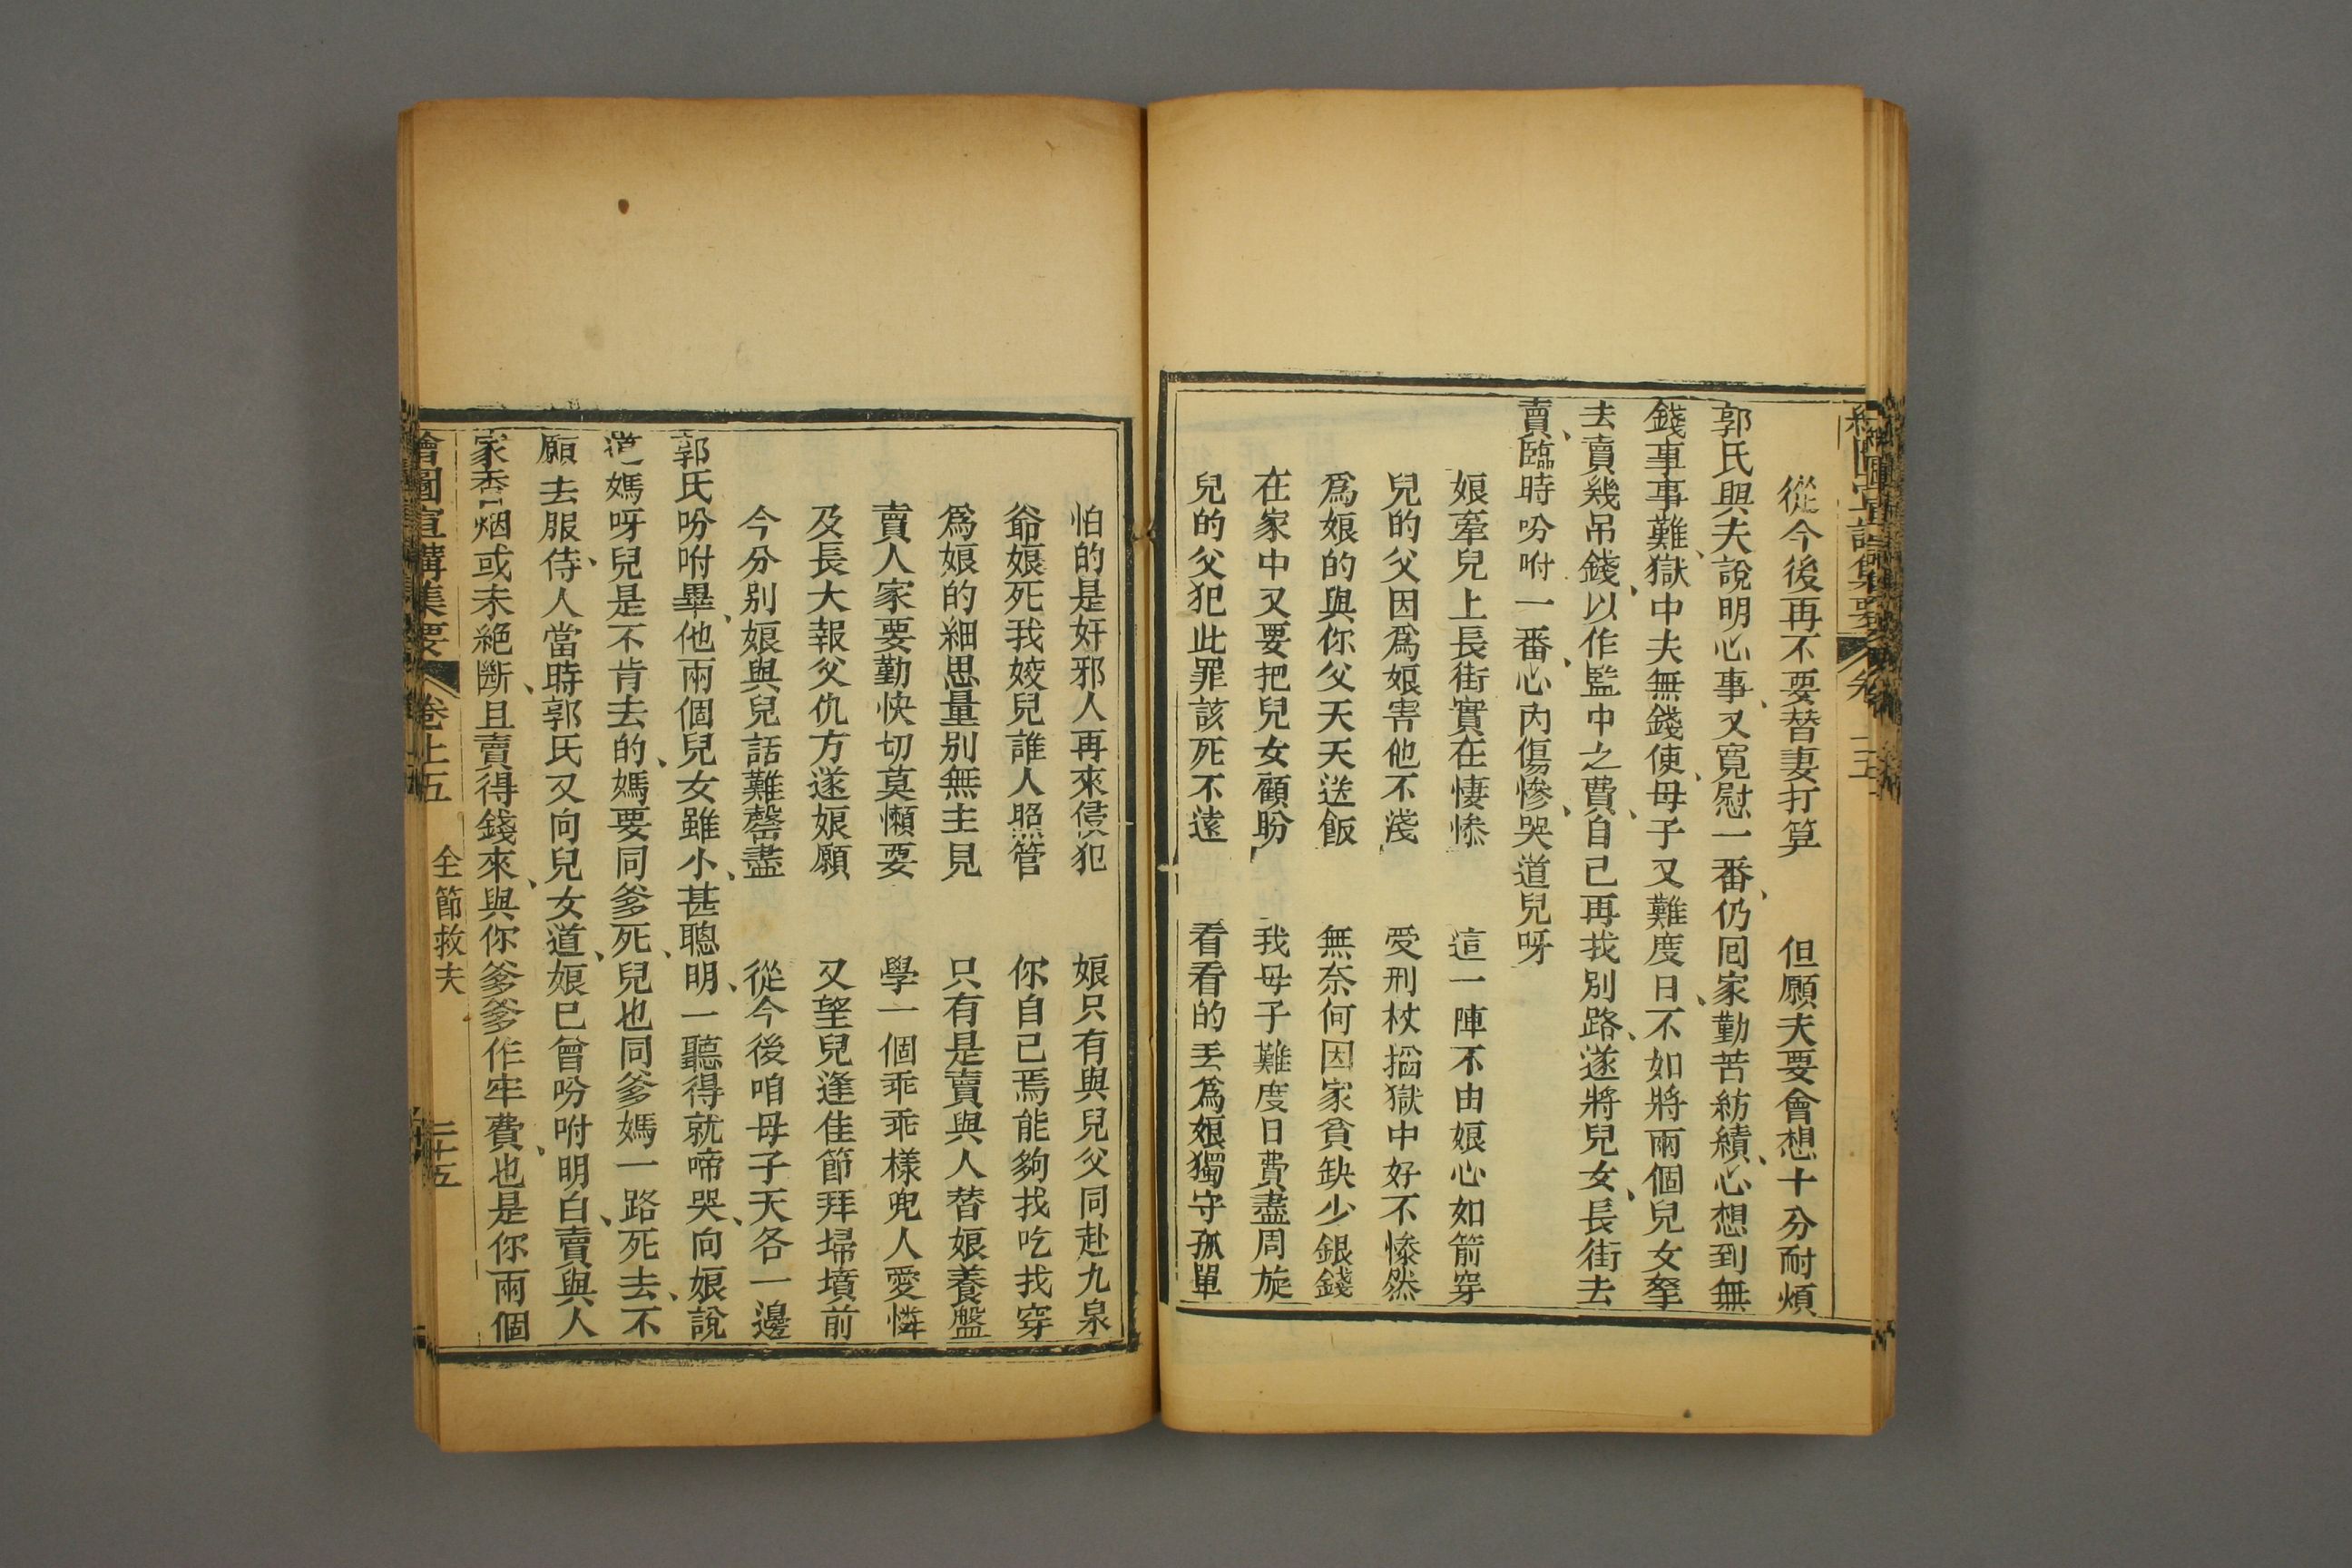 從今後再不要替妻打算　但願夫要會想十分耐煩
郭氏與夫說明心事、又寬慰一番、仍囘家勤苦紡績、心想到無
錢事事難、獄中夫無錢使、母子又難度日、不如將兩個兒女牽
去賣幾吊錢、以作監中之費、自己再找別路、遂將兒女、長街去
賣、臨時吩咐一番、心內傷慘、哭道兒呀
娘牽兒上長街實在悽慘　這一陣不由娘心如箭穿
兒的父因爲娘害他不淺　受刑杖搯獄中好不慘然
爲娘的與你父天天送飯　無奈何因家貧缺少銀錢
在家中又要把兒女顧盼　我母子難度日費盡周旋
兒的父犯此罪該死不遠　看看的丟爲娘獨守孤單
怕的是奸邪人再來侵犯　娘只有與兒父同赴九泉
爺娘死我姣兒誰人照管　你自己焉能夠找吃找穿
爲娘的細思量別無主見　只有是賣與人替娘養盤
賣人家要勤快切莫懶耍　學一個乖乖樣兜人愛憐
及長大報父仇方遂娘願　又望兒逢佳節拜掃墳前
今分別娘與兒話難罄盡　從今後咱母子天各一邊
郭氏吩咐畢、他兩個兒女雖小、甚聰明、一聽得就啼哭、向娘說
道媽呀兒是不肯去的、媽要同爹死、兒也同爹媽一路死去、不
願去服侍、人當時郭氏又向兒女道、娘已曾吩咐明白、賣與人
家香烟或未絕斷、且賣得錢來、與你爹爹作牢費、也是你兩個
繪圖宣講集要　卷上五　全節救夫　二十五